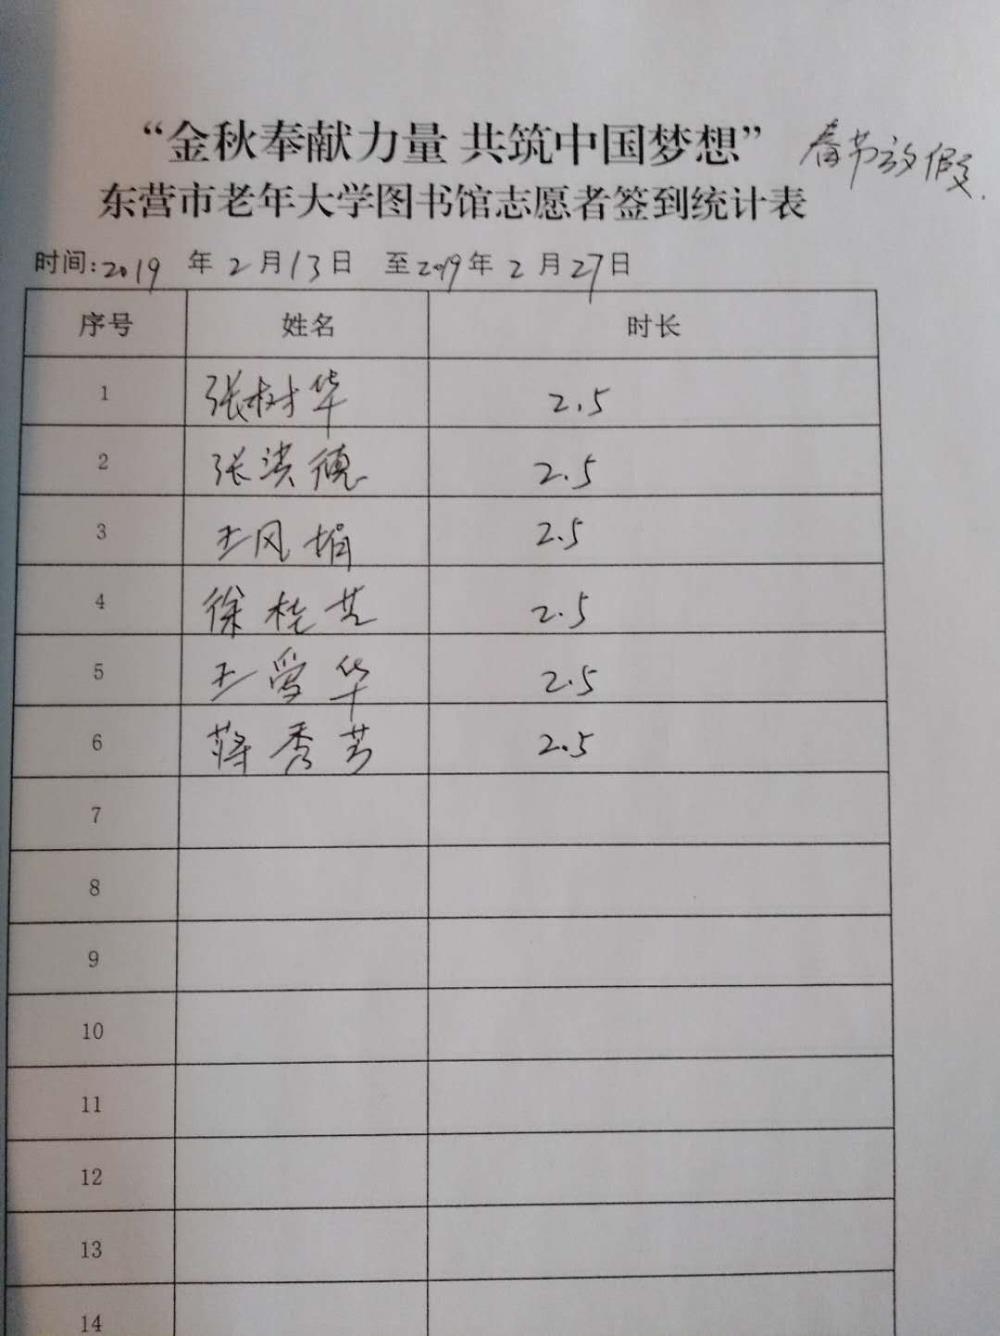 “金秋奉献力量 共筑中国梦想” 春节放假.
东营市老年大学图书馆志愿者签到统计表
时间:2019 年 2 月 13 日 至 2019 年 2 月 27 日
序号 姓名 时长
1 张树华 2.5
2 张洪德 2.5
3 王风娟 2.5
4 徐桂芝 2.5
5 王雪华 2.5
6 蒋秀芳 2.5
7
8
9
10
11
12
13
14